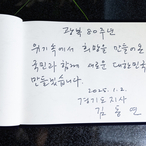 광복 80주년
위기속에서 희망을 만들어온
국민과 함께 새로운 대한민국
만들겠습니다.
2025. 1. 2.
경기도지사
김동연